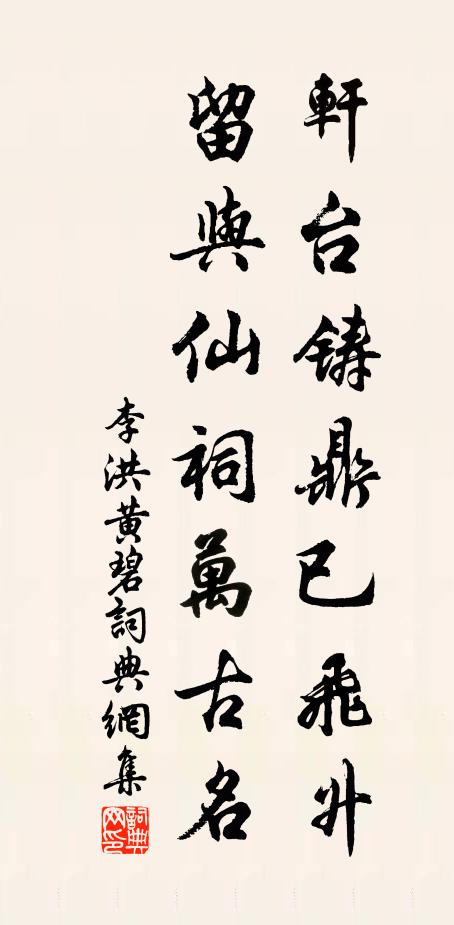 軒台鋳鼎已飛升
留與仙祠萬古名
李洪黃碧詞典網集
詞典
网印